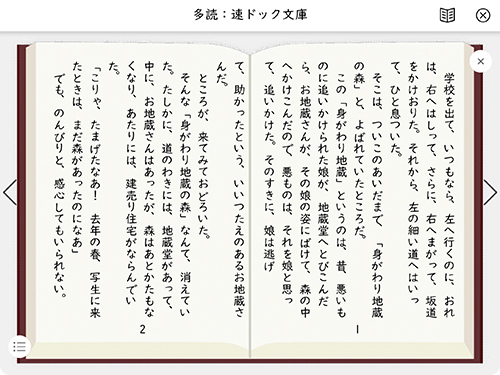 多読：速ドック文庫
　学校を出て、いつもなら、左へ行くのに、おれ
は、右へはしって、さらに、右へまがって、坂道
をかけおりた。それから、左の細い道へはいっ
て、ひと息ついた。
　そこは、ついこのあいだまで、「身がわり地蔵
の森」と、よばれていたところだ。
　この「身がわり地蔵」というのは、昔、悪いも
のに追いかけられた娘が、地蔵堂へとびこんだ
ら、お地蔵さんが、その娘の姿にばけて、森の中
へかけこんだので、悪ものは、それを娘と思っ
て、追いかけた。そのすきに、娘は逃げ
1
て、助かったという、いいつたえのあるお地蔵さ
んだ。
　ところが、来てみておどろいた。
　そんな「身がわり地蔵の森」なんて、消えてい
た。たしかに、道のわきには、地蔵堂があって、
中に、お地蔵さんはあったが、森はあとかたもな
くなり、あたりには、建売り住宅がならんでい
た。
「こりゃ、たまげたなあ！　去年の春、写生に来
たときは、まだ森があったのになあ」
　でも、のんびりと、感心してもいられない。
2